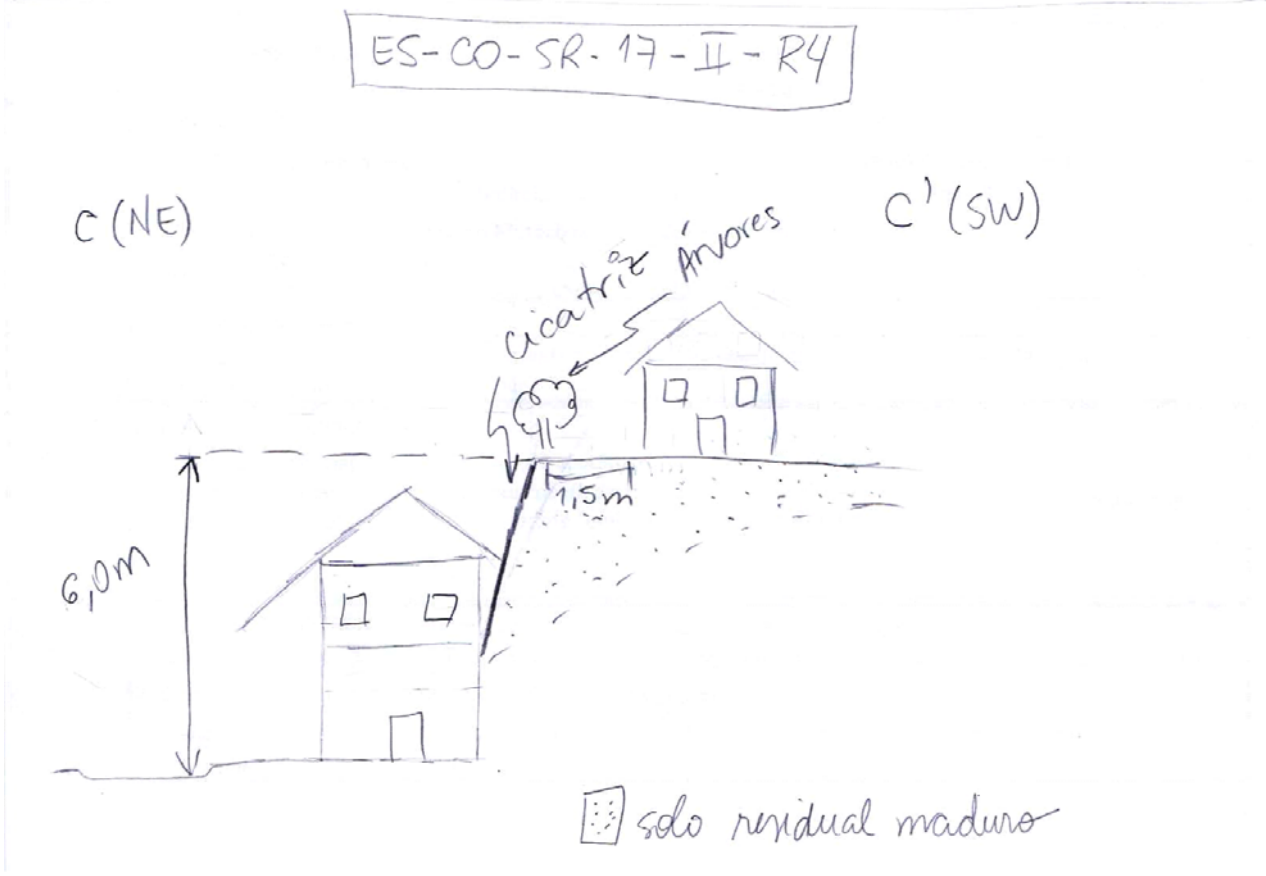 ES-CO-SR-17-II-R4
C (NE)
C' (SW)
cicatriz
Árvores
1,5m
6,0m
solo residual maduro